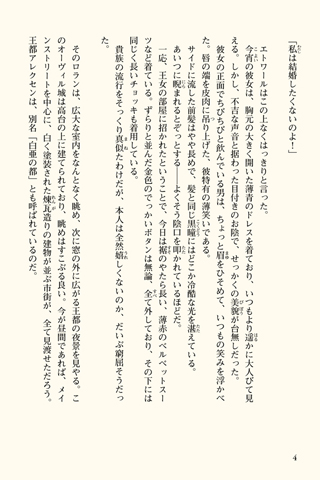 「私は結婚したくないのよ！」
エトワールはこの上なくはっきりと言った。
今宵の彼女は、胸元の大きく開いた薄青のドレスを着ており、いつもより遥かに大人びて見
える。しかし、不吉な声音と据わった目付きのお陰で、せっかくの美貌が台無しだった。
彼女の正面でちびちびと飲んでいる男は、ちょっと眉をひそめて、いつもの笑みを浮かべ
た。唇の端を皮肉に吊り上げた、彼特有の薄笑いである。
サイドに流した前髪はやや長めで、髪と同じ黒瞳にはどこか冷酷な光を湛えている。
あいつに睨まれるとぞっとする――よくそう陰口を叩かれているほどだ。
一応、王女の部屋に招かれたということで、今日は裾のやたら長い、薄赤のベルベットスー
ツなど着ている。ずらりと並んだ金色のでっかいボタンは無論、全て外しており、その下には
同じく長いチョッキも着用している。
貴族の流行をそっくり真似たわけだが、本人は全然嬉しくないのか、だいぶ窮屈そうだっ
た。
そのロランは、広大な室内をなんとなく眺め、次に窓の外に広がる王都の夜景を見やる。こ
のオーヴィル城は高台の上に建てられており、眺めはすこぶる良い。今が昼間であれば、メイ
ンストリートを中心に、白く塗装された煉瓦造りの建物が並ぶ市街が、全て見渡せただろう。
王都アレクセンは、別名「白亜の都」とも呼ばれているのだ。
4